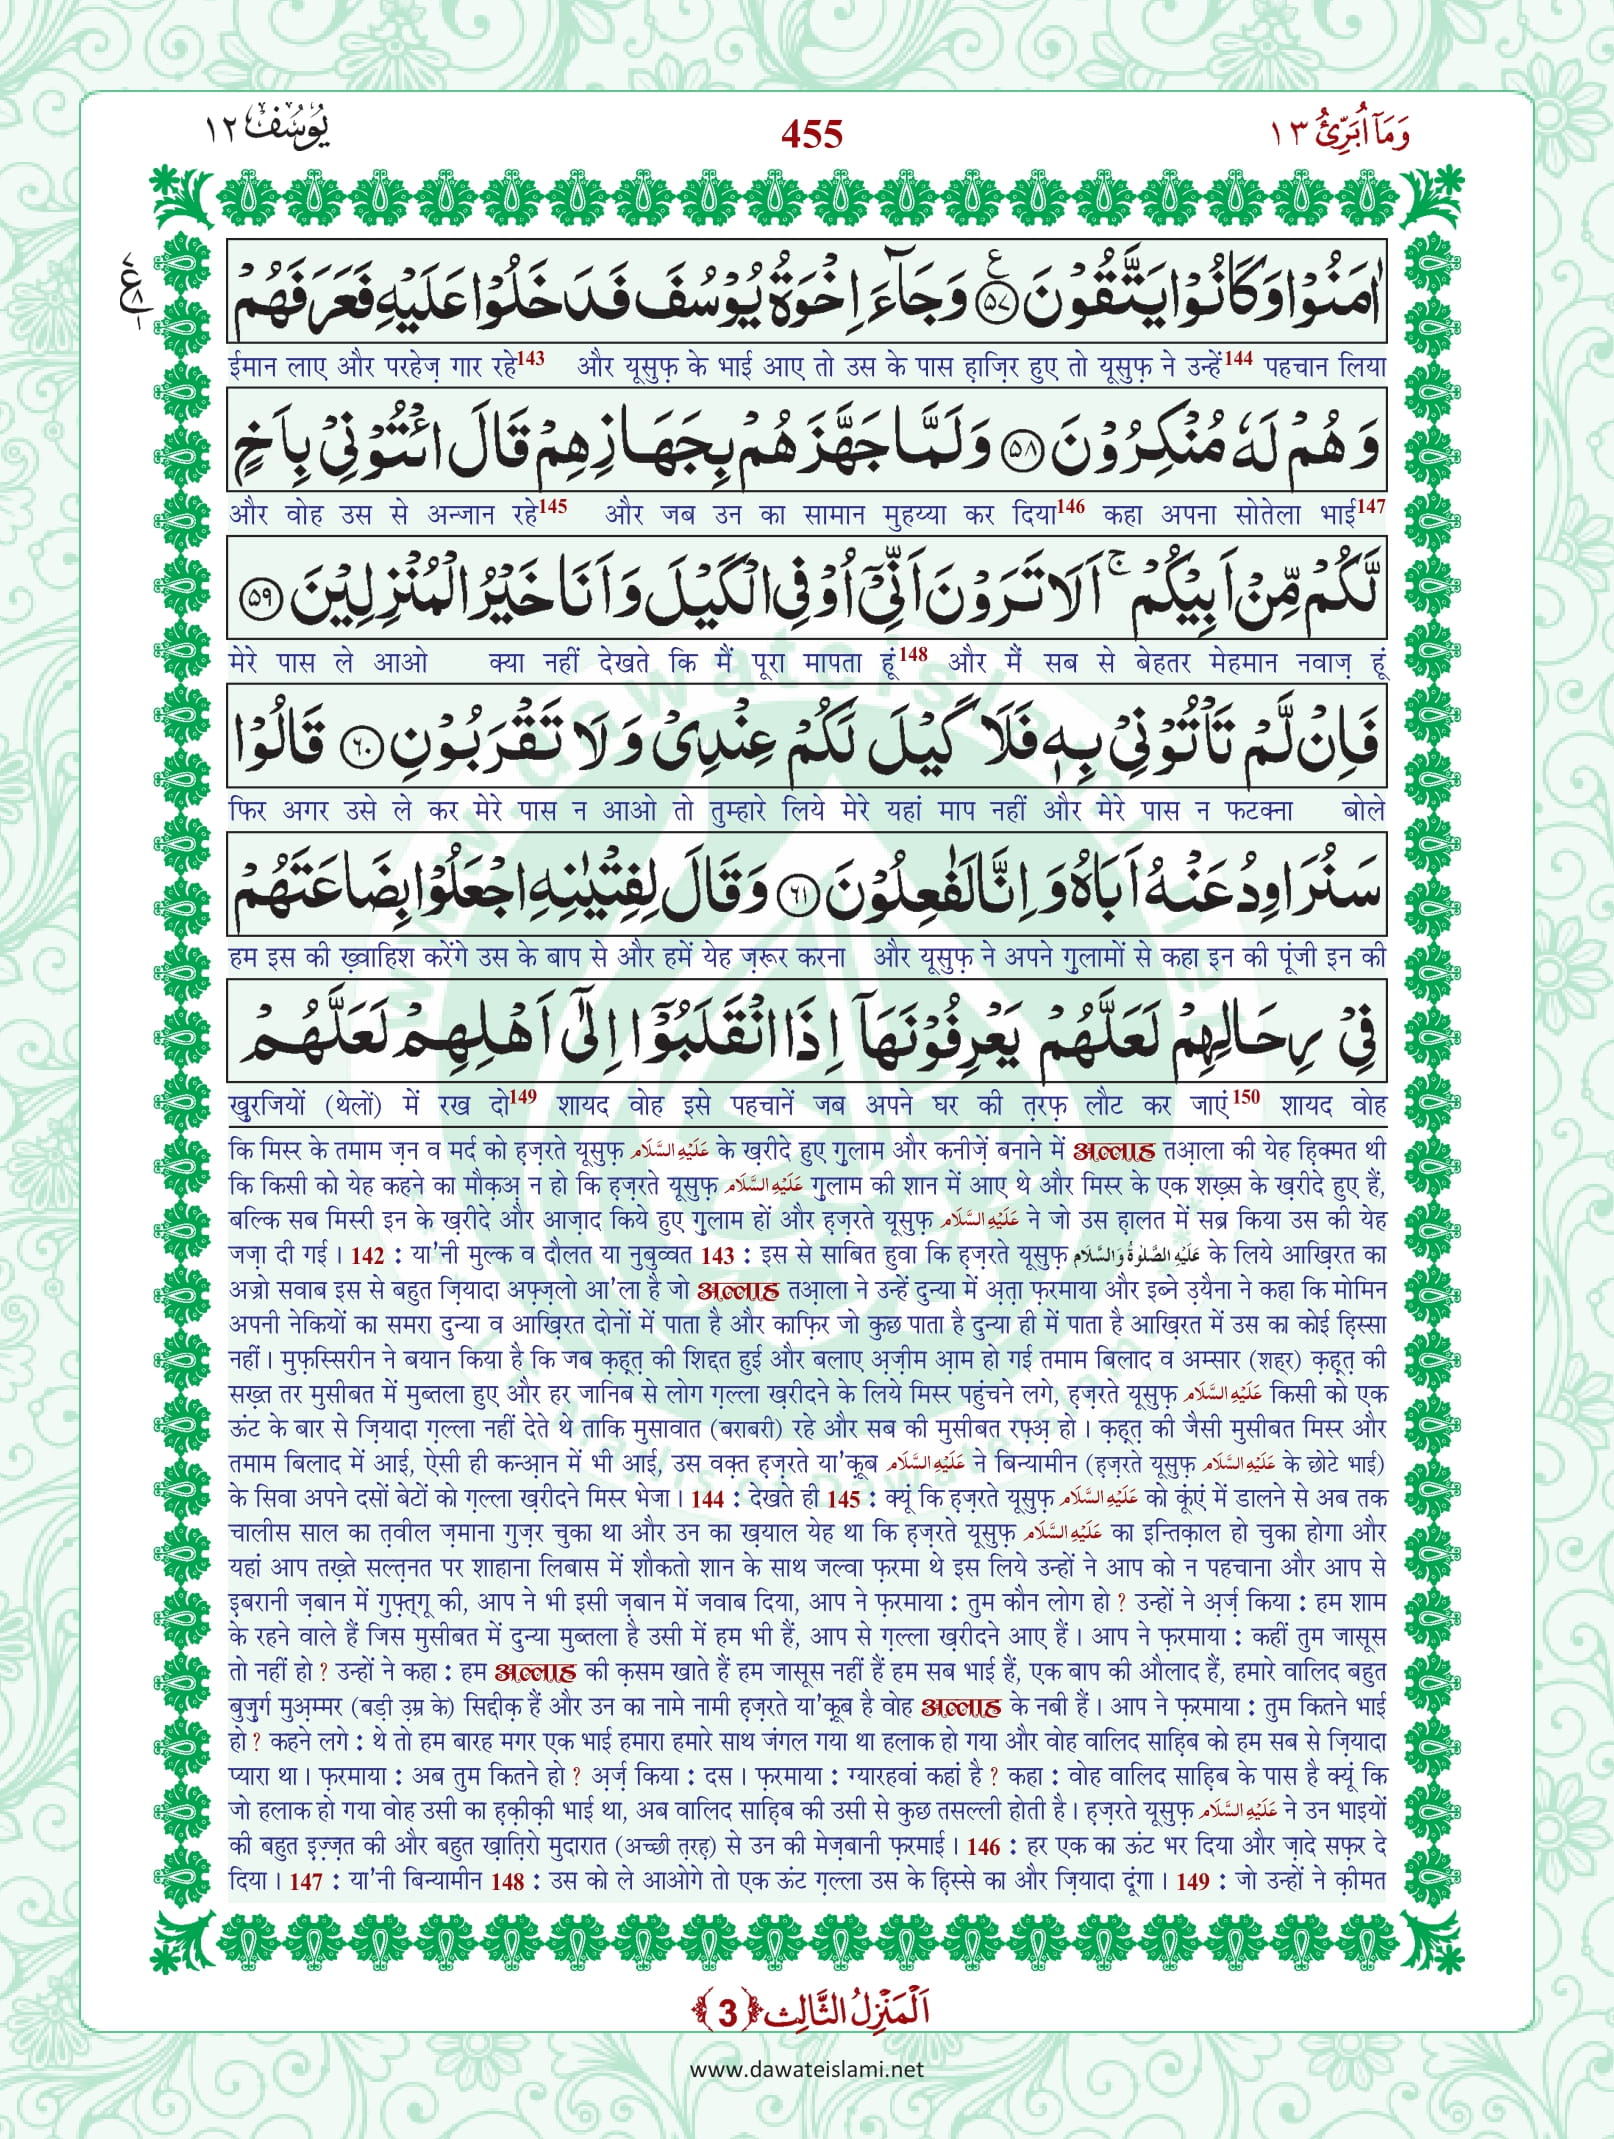 وَمَآ اُبَرِّئُ ١٣
455
یُوْسُف ١٢
اٰمَنُوْا وَ كَانُوْا یَتَّقُوْنَ ﴿۵۷﴾ وَ جَآءَ اِخْوَةُ یُوْسُفَ فَدَخَلُوْا عَلَیْهِ فَعَرَفَهُمْ
ईमान लाए और परहेज़ गार रहे143 और यूसुफ़ के भाई आए तो उस के पास ह़ाज़िर हुए तो यूसुफ़ ने उन्हें144 पहचान लिया
وَ هُمْ لَهٗ مُنْكِرُوْنَ ﴿۵۸﴾ وَ لَمَّا جَهَّزَهُمْ بِجَهَازِهِمْ قَالَ ائْتُوْنِیْ بِاَخٍ
और वोह उस से अन्जान रहे145 और जब उन का सामान मुहय्या कर दिया146 कहा अपना सोतेला भाई147
لَّكُمْ مِّنْ اَبِیْكُمْ ۚ اَلَا تَرَوْنَ اَنِّیْۤ اُوْفِی الْكَیْلَ وَ اَنَا خَیْرُ الْمُنْزِلِیْنَ ﴿۵۹﴾
मेरे पास ले आओ क्या नहीं देखते कि मैं पूरा मापता हूं148 और मैं सब से बेहतर मेहमान नवाज़ हूं
فَاِنْ لَّمْ تَاْتُوْنِیْ بِهٖ فَلَا كَیْلَ لَكُمْ عِنْدِیْ وَ لَا تَقْرَبُوْنِ ﴿۶۰﴾ قَالُوْا
फिर अगर उसे ले कर मेरे पास न आओ तो तुम्हारे लिये मेरे यहां माप नहीं और मेरे पास न फटक्ना बोले
سَنُرَاوِدُ عَنْهُ اَبَاهُ وَ اِنَّا لَفٰعِلُوْنَ ﴿۶۱﴾ وَ قَالَ لِفِتْیٰنِهِ اجْعَلُوْا بِضَاعَتَهُمْ
हम इस की ख़्वाहिश करेंगे उस के बाप से और हमें येह ज़रूर करना और यूसुफ़ ने अपने ग़ुलामों से कहा इन की पूंजी इन की
فِیْ رِحَالِهِمْ لَعَلَّهُمْ یَعْرِفُوْنَهَاۤ اِذَا انْقَلَبُوْۤا اِلٰۤى اَهْلِهِمْ لَعَلَّهُمْ
खुरजियों (थेलों) में रख दो149 शायद वोह इसे पहचानें जब अपने घर की त़रफ़ लौट कर जाएं150 शायद वोह
कि मिस्र के तमाम ज़न व मर्द को ह़ज़रते यूसुफ़ عَلَيْهِ السَّلَام के ख़रीदे हुए ग़ुलाम और कनीज़ें बनाने में अल्लाह तआ़ला की येह ह़िक्मत थी
कि किसी को येह कहने का मौक़अ़ न हो कि ह़ज़रते यूसुफ़ عَلَيْهِ السَّلَام ग़ुलाम की शान में आए थे और मिस्र के एक शख़्स के ख़रीदे हुए हैं,
बल्कि सब मिस्री इन के ख़रीदे और आज़ाद किये हुए ग़ुलाम हों और ह़ज़रते यूसुफ़ عَلَيْهِ السَّلَام ने जो उस ह़ालत में सब्र किया उस की येह
जज़ा दी गई । 142 : या'नी मुल्क व दौलत या नुबुव्वत 143 : इस से साबित हुवा कि ह़ज़रते यूसुफ़ عَلَيْهِ الصَّلٰوةُ وَالسَّلَام के लिये आख़िरत का
अज्रो सवाब इस से बहुत ज़ियादा अफ़्ज़लो आ'ला है जो अल्लाह तआ़ला ने उन्हें दुन्या में अ़त़ा फ़रमाया और इब्ने उ़यैना ने कहा कि मोमिन
अपनी नेकियों का समरा दुन्या व आख़िरत दोनों में पाता है और काफ़िर जो कुछ पाता है दुन्या ही में पाता है आख़िरत में उस का कोई ह़िस्सा
नहीं । मुफ़स्सिरीन ने बयान किया है कि जब क़ह़त़ की शिद्दत हुई और बलाए अ़ज़ीम आ़म हो गई तमाम बिलाद व अम्सार (शहर) क़ह़त़ की
सख़्त तर मुसीबत में मुब्तला हुए और हर जानिब से लोग ग़ल्ला ख़रीदने के लिये मिस्र पहुंचने लगे, ह़ज़रते यूसुफ़ عَلَيْهِ السَّلَام किसी को एक
ऊंट के बार से ज़ियादा ग़ल्ला नहीं देते थे ताकि मुसावात (बराबरी) रहे और सब की मुसीबत रफ़्अ़ हो । क़ह़त़ की जैसी मुसीबत मिस्र और
तमाम बिलाद में आई, ऐसी ही कन्आ़न में भी आई, उस वक़्त ह़ज़रते या'क़ूब عَلَيْهِ السَّلَام ने बिन्यामीन (ह़ज़रते यूसुफ़ عَلَيْهِ السَّلَام के छोटे भाई)
के सिवा अपने दसों बेटों को ग़ल्ला ख़रीदने मिस्र भेजा । 144 : देखते ही 145 : क्यूं कि ह़ज़रते यूसुफ़ عَلَيْهِ السَّلَام को कूंएं में डालने से अब तक
चालीस साल का त़वील ज़माना गुज़र चुका था और उन का ख़याल येह था कि ह़ज़रते यूसुफ़ عَلَيْهِ السَّلَام का इन्तिक़ाल हो चुका होगा और
यहां आप तख़्ते सल्त़नत पर शाहाना लिबास में शौकतो शान के साथ जल्वा फ़रमा थे इस लिये उन्हों ने आप को न पहचाना और आप से
इ़बरानी ज़बान में गुफ़्त्गू की, आप ने भी इसी ज़बान में जवाब दिया, आप ने फ़रमाया : तुम कौन लोग हो ? उन्हों ने अ़र्ज़ किया : हम शाम
के रहने वाले हैं जिस मुसीबत में दुन्या मुब्तला है उसी में हम भी हैं, आप से ग़ल्ला ख़रीदने आए हैं । आप ने फ़रमाया : कहीं तुम जासूस
तो नहीं हो ? उन्हों ने कहा : हम अल्लाह की क़सम खाते हैं हम जासूस नहीं हैं हम सब भाई हैं, एक बाप की औलाद हैं, हमारे वालिद बहुत
बुज़ुर्ग मुअ़म्मर (बड़ी उ़म्र के) सिद्दीक़ हैं और उन का नामे नामी ह़ज़रते या'क़ूब है वोह अल्लाह के नबी हैं । आप ने फ़रमाया : तुम कितने भाई
हो ? कहने लगे : थे तो हम बारह मगर एक भाई हमारा हमारे साथ जंगल गया था हलाक हो गया और वोह वालिद साह़िब को हम सब से ज़ियादा
प्यारा था । फ़रमाया : अब तुम कितने हो ? अ़र्ज़ किया : दस । फ़रमाया : ग्यारहवां कहां है ? कहा : वोह वालिद साह़िब के पास है क्यूं कि
जो हलाक हो गया वोह उसी का ह़क़ीक़ी भाई था, अब वालिद साह़िब की उसी से कुछ तसल्ली होती है । ह़ज़रते यूसुफ़ عَلَيْهِ السَّلَام ने उन भाइयों
की बहुत इ़ज़्ज़त की और बहुत ख़ात़िरो मुदारात (अच्छी त़रह़) से उन की मेज़बानी फ़रमाई । 146 : हर एक का ऊंट भर दिया और ज़ादे सफ़र दे
दिया । 147 : या'नी बिन्यामीन 148 : उस को ले आओगे तो एक ऊंट ग़ल्ला उस के ह़िस्से का और ज़ियादा दूंगा । 149 : जो उन्हों ने क़ीमत
اَلْمَنْزِلُ الثَّالِث ﴿3﴾
www.dawateislami.net